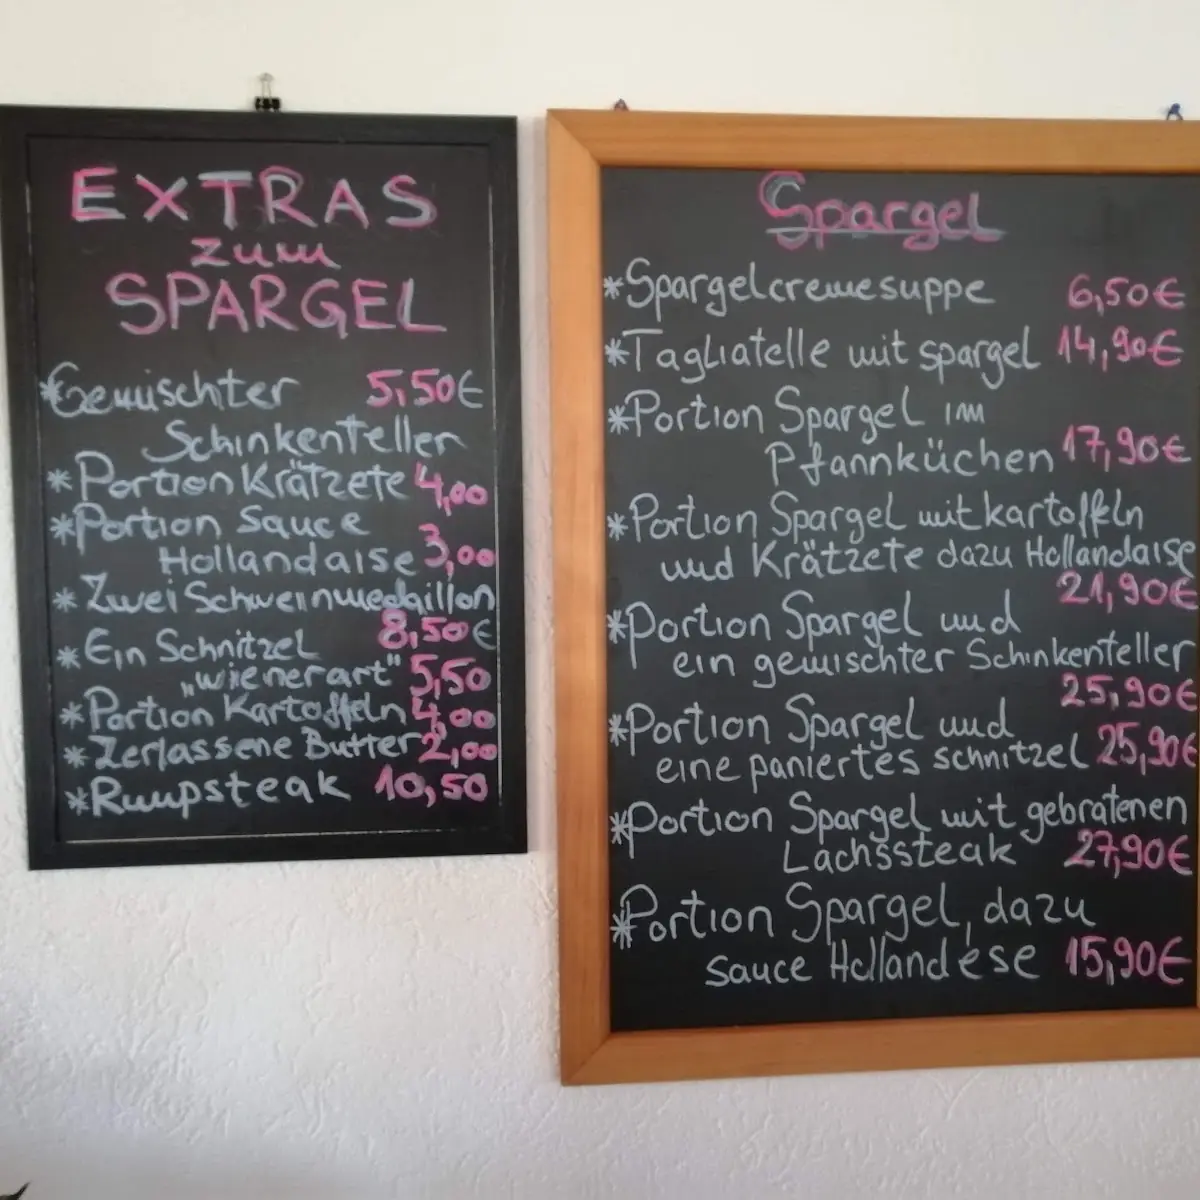 EXTRAS
zum
SPARGEL
*Gemischter 5,50€
Schinkenteller
*Portion Krätzete 4,00
*Portion Sauce
Hollandaise 3,00
*Zwei Schweinmedaillon
8,50€
*Ein Schnitzel
„wienerart" 5,50
*Portion Kartoffeln 4,00
*Zerlassene Butter 2,00
*Rumpsteak 10,50
Spargel
*Spargelcremesuppe 6,50€
*Tagliatelle mit spargel 14,90€
*Portion Spargel im
Pfannküchen 17,90€
*Portion Spargel mit kartoffeln
und Krätzete dazu Hollandaise
21,90€
*Portion Spargel und
ein gemischter Schinkenteller
25,90€
*Portion Spargel und
eine paniertes schnitzel 25,90€
*Portion Spargel mit gebratenen
Lachssteak 27,90€
*Portion Spargel, dazu
sauce Hollandese 15,90€